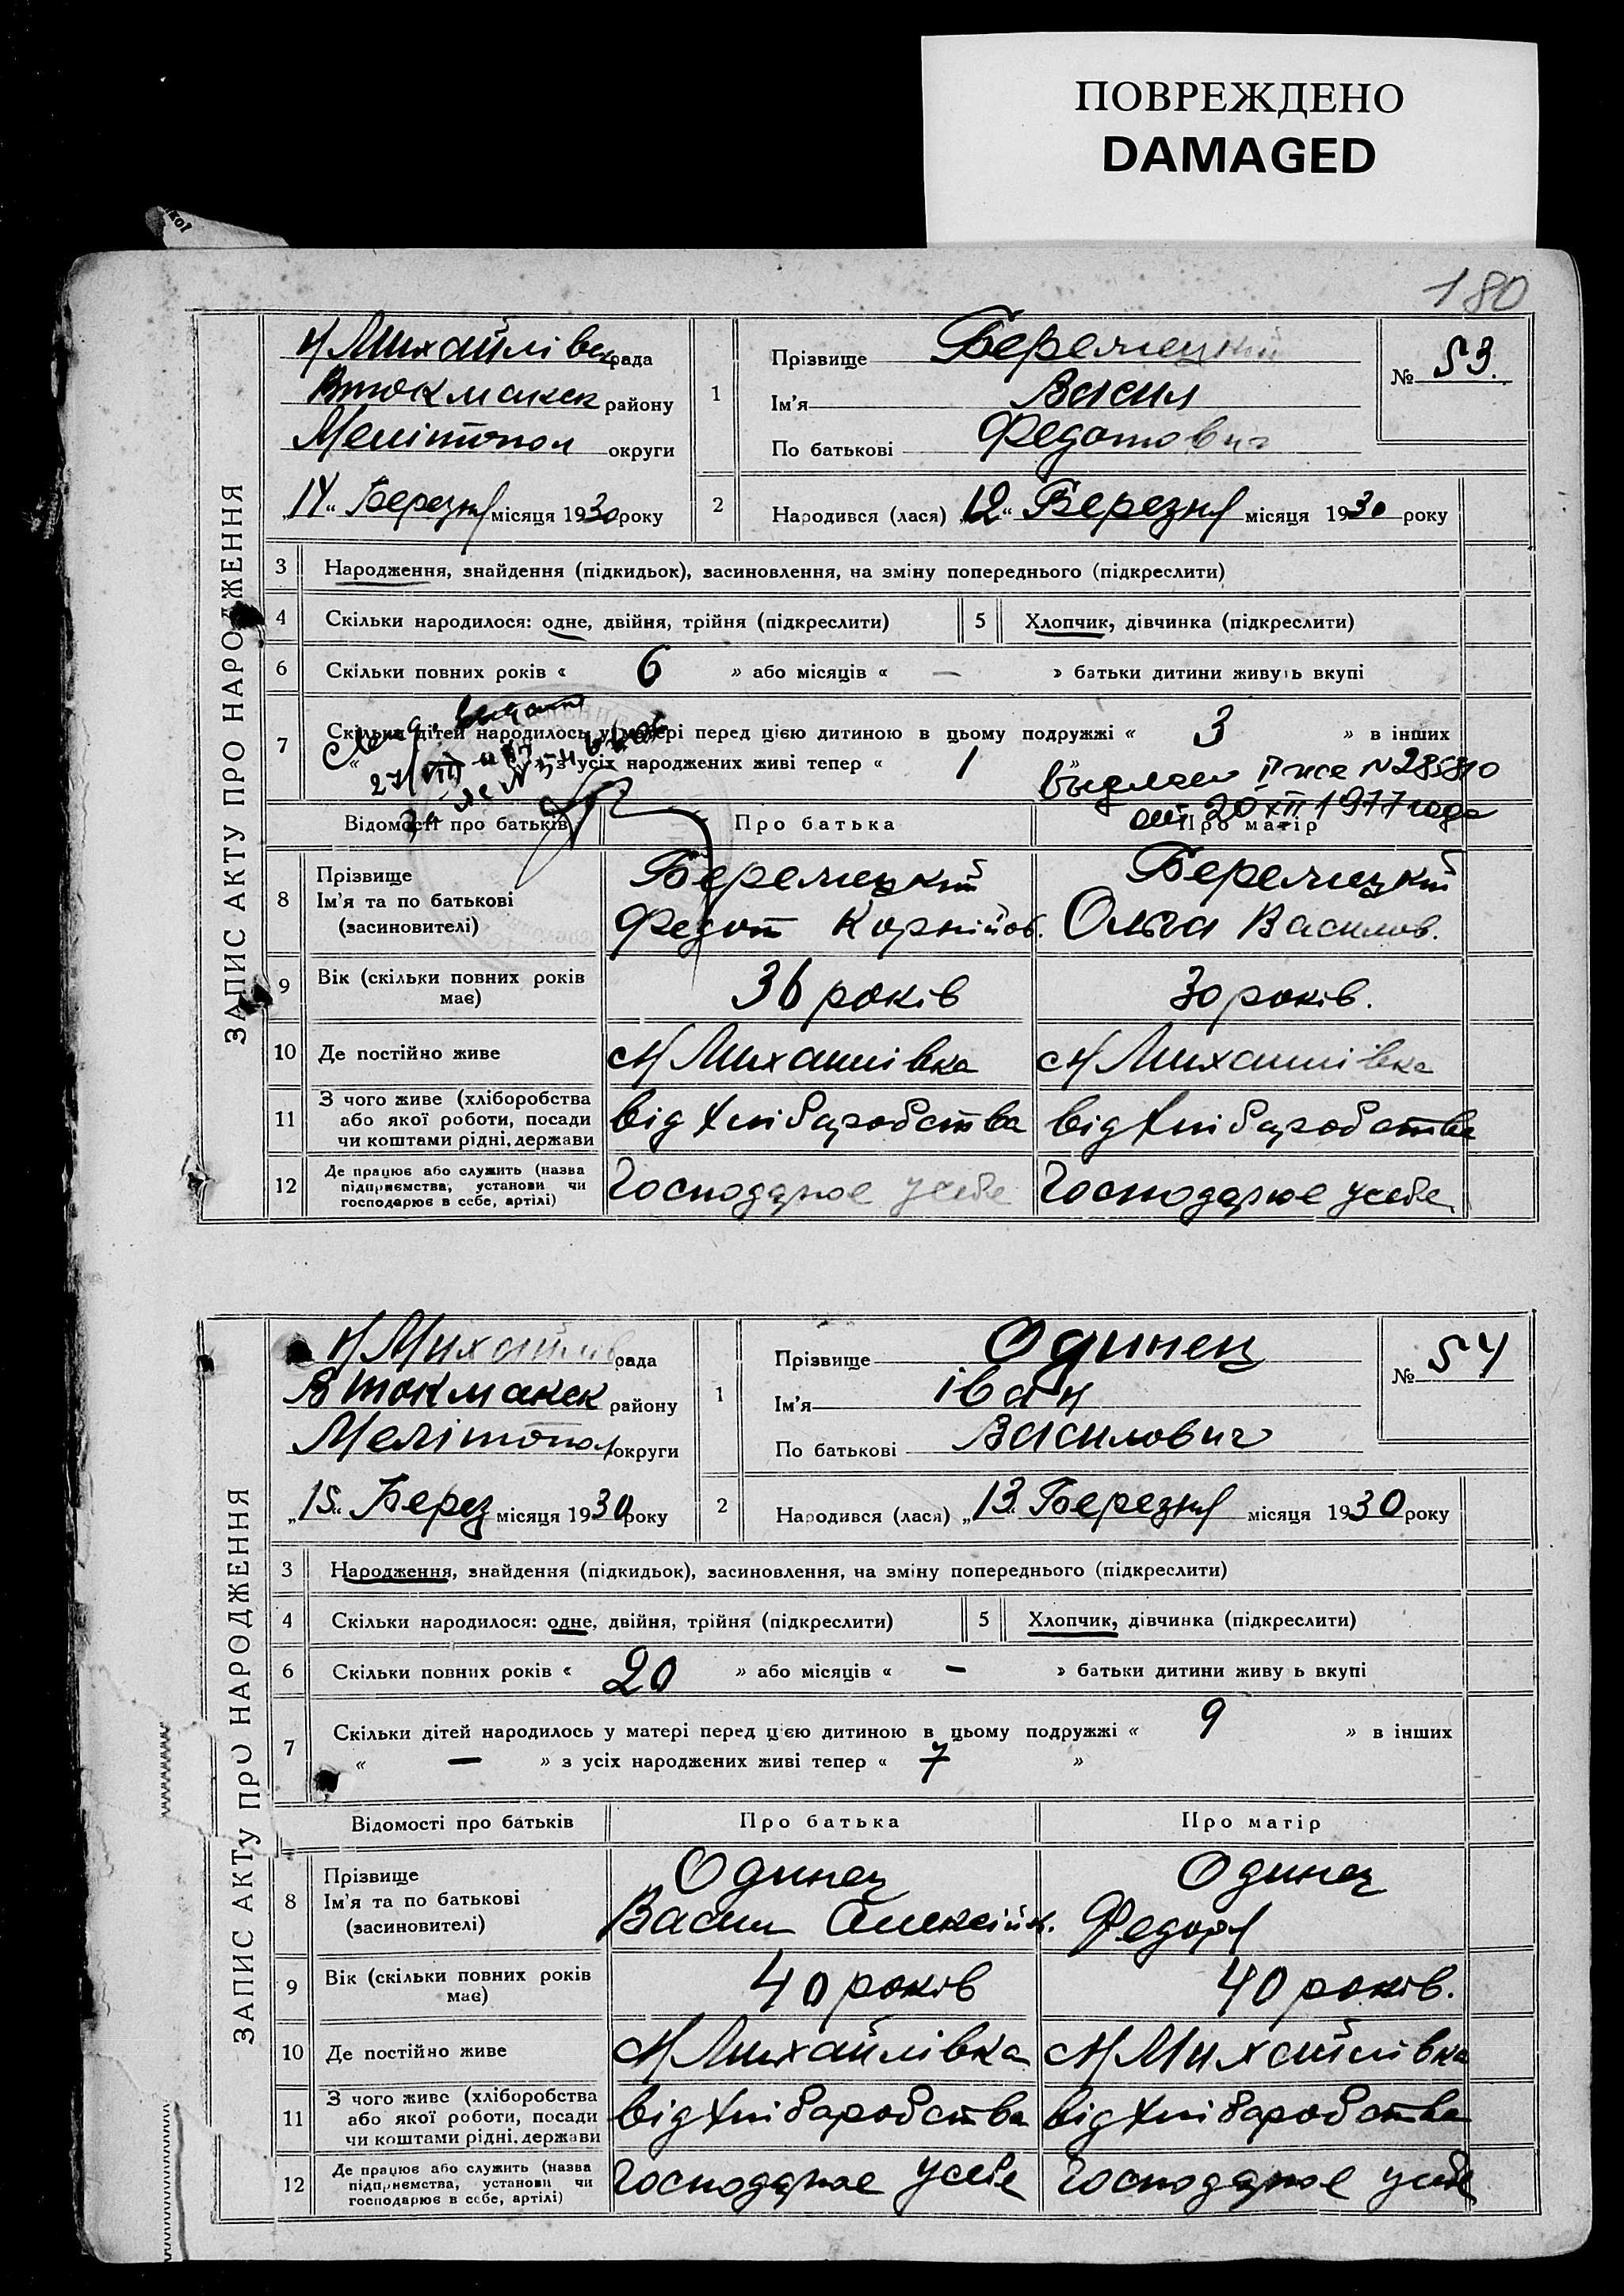 ПОВРЕЖДЕНО
DAMAGED
180
ЗАПИС АКТУ ПРО НАРОДЖЕННЯ
Н Михайлівск рада
Втокмакск району
Мелітопол округи
„14“ Березня місяця 1930 року
1
Прізвище Беремецкий
Ім'я Васил
По батькові Федотович
№ 53.
2
Народився (лася) „12“ Березня місяця 1930 року
3 Народження, знайдення (підкидьок), засиновлення, на зміну попереднього (підкреслити)
4 Скільки народилося: одне, двійня, трійня (підкреслити) 5 Хлопчик, дівчинка (підкреслити)
6 Скільки повних років « 6 » або місяців « — » батьки дитини живуть вкупі
7 Скільки дітей народилось у матері перед цією дитиною в цьому подружжі « 3 » в інших
« з усіх народжених живі тепер « 1 »
27/VIII
№
II № 285810
от 20 XII 1977 года
Відомості про батьків Про батька Про матір
8 Прізвище
Ім'я та по батькові
(засиновителі)
Беремецкий
Федот Корнійов.
Беремецкий
Ольга Василов.
9 Вік (скільки повних років має) 36 років 30 років.
10 Де постійно живе с Н Михайлівка с Н Михайлівка
11 З чого живе (хліборобства
або якої роботи, посади
чи коштами рідні, держави
від хліборобства від хліборобства
12 Де працює або служить (назва
підприємства, установи чи
господарює в себе, артілі)
Господарює у себе Господарює у себе
ЗАПИС АКТУ ПРО НАРОДЖЕННЯ
Н Михайлів рада
Втокмакск району
Мелітопол округи
„15“ Берез місяця 1930 року
1
Прізвище Одинец
Ім'я Іван
По батькові Василович
№ 54
2
Народився (лася) „13“ Березня місяця 1930 року
3 Народження, знайдення (підкидьок), засиновлення, на зміну попереднього (підкреслити)
4 Скільки народилося: одне, двійня, трійня (підкреслити) 5 Хлопчик, дівчинка (підкреслити)
6 Скільки повних років « 20 » або місяців « — » батьки дитини живу ь вкупі
7 Скільки дітей народилось у матері перед цією дитиною в цьому подружжі « 9 » в інших
« — » з усіх народжених живі тепер « 7 »
Відомості про батьків Про батька Про матір
8 Прізвище
Ім'я та по батькові
(засиновителі)
Одинец
Васил Алексійов.
Одинец
Федора
9 Вік (скільки повних років має) 40 років 40 років.
10 Де постійно живе с Н Михайлівка с Н Михайлівка
11 З чого живе (хліборобства
або якої роботи, посади
чи коштами рідні, держави
від хліборобства від хліборобства
12 Де працює або служить (назва
підприємства, установи чи
господарює в себе, артілі)
Господарює у себе Господарює у себе